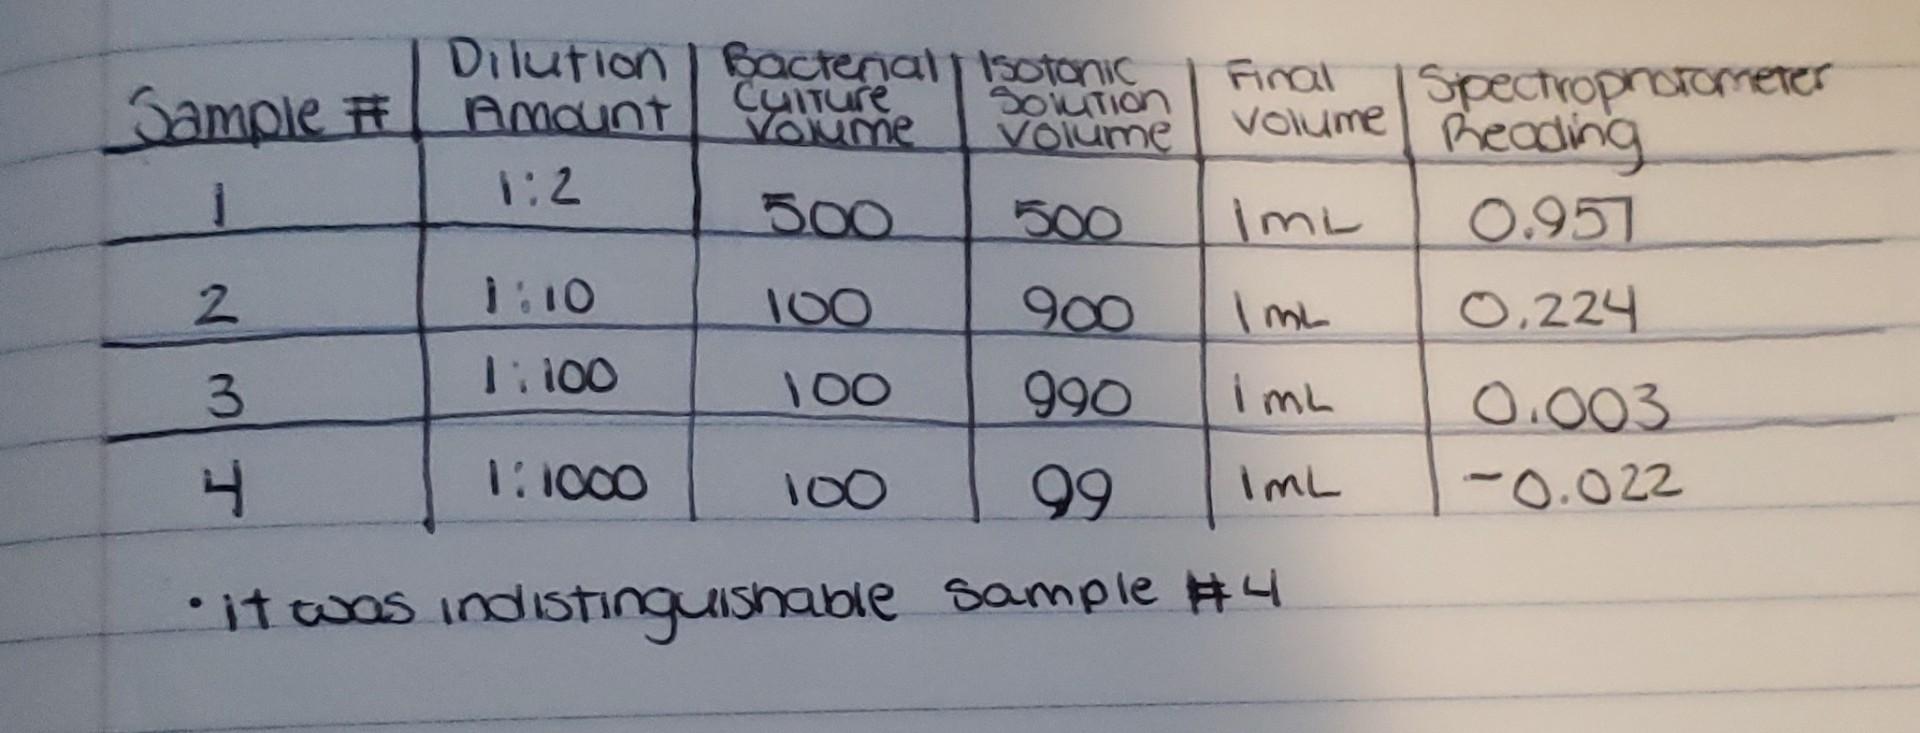 Sample # | Dilution Amount | Bacterial Culture Volume | Isotonic Solution Volume | Final Volume | Spectrophotometer Reading
1 | 1:2 | 500 | 500 | 1mL | 0.957
2 | 1:10 | 100 | 900 | 1mL | 0.224
3 | 1:100 | 100 | 990 | 1mL | 0.003
4 | 1:1000 | 100 | 99 | 1mL | -0.022
• it was indistinguishable sample #4